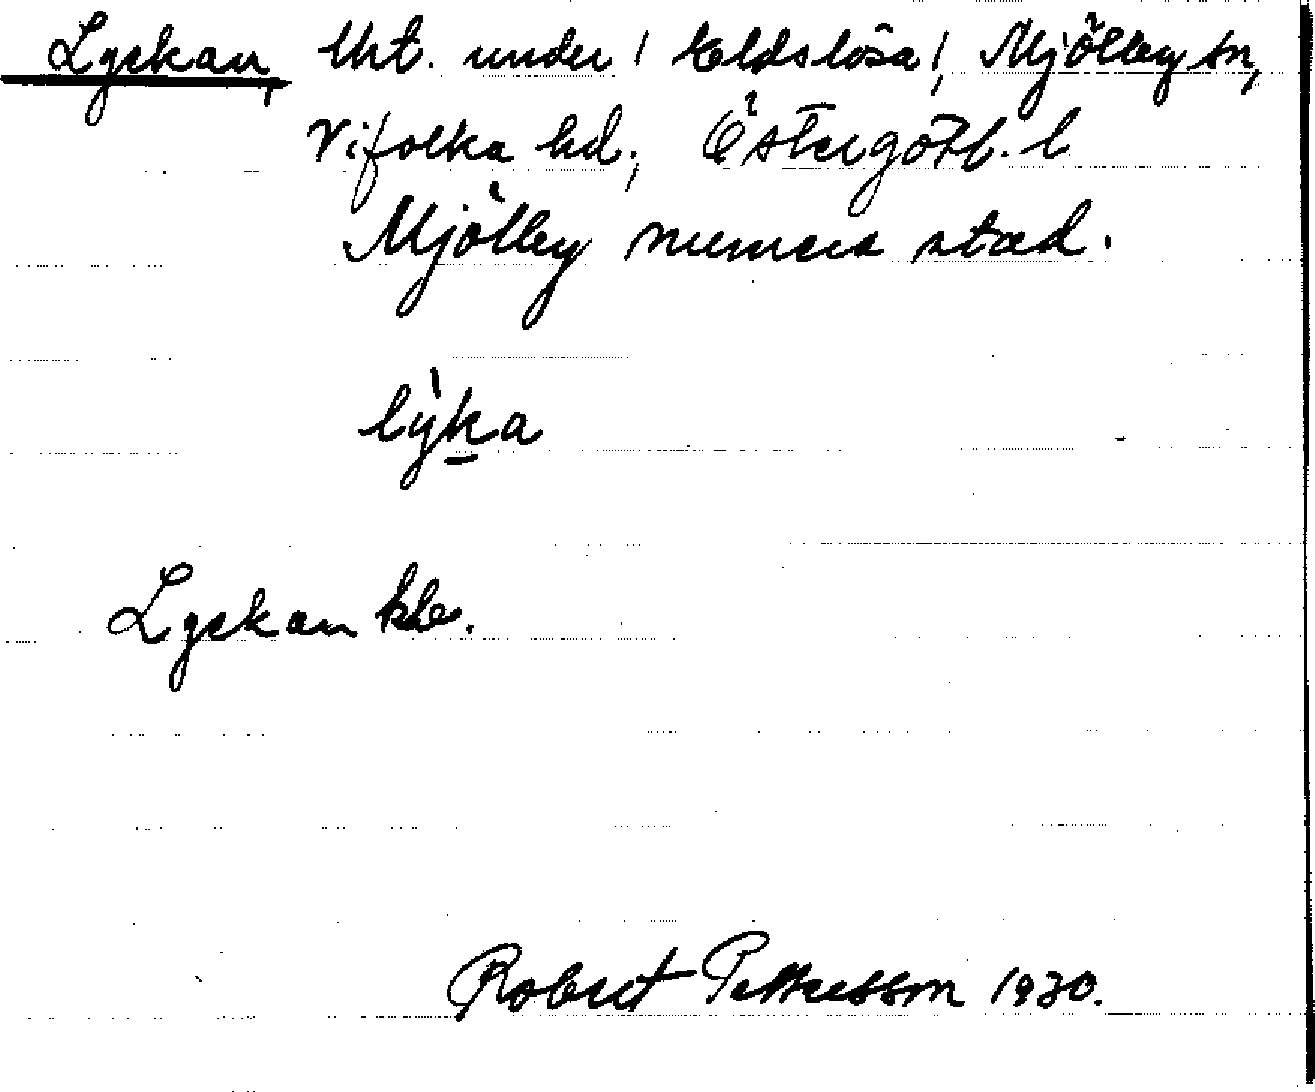 Lyckan, Uht. under / Eldslösa /, Mjölby sn,
Vifolka hd., Östergötl. l
Mjölby numera stad.
lỳka
Lyckan
Robert Pettersson 1930.